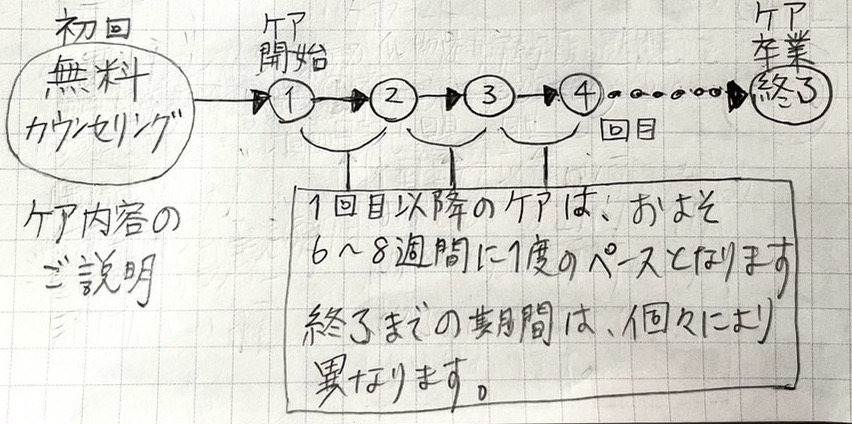 初回
無料
カウンセリング
ケア内容の
ご説明
ケア
開始
1
2
3
4
回目
ケア
卒業
終了
1回目以降のケアは、およそ
6〜8週間に1度のペースとなります
終了までの期間は、個々により
異なります。